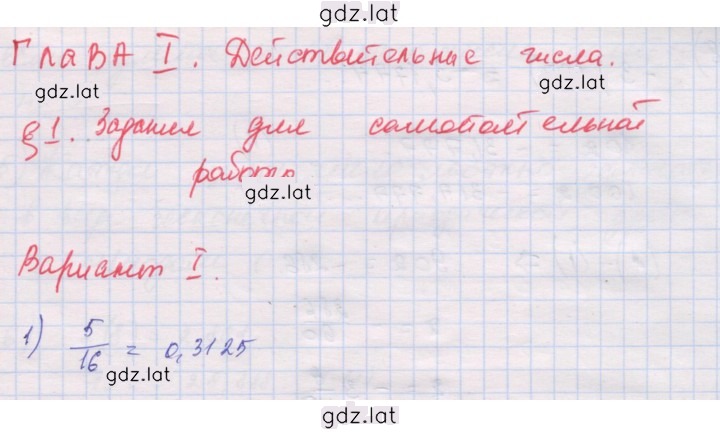 gdz.lat
Глава I. Действительные числа.
gdz.lat
gdz.lat
§1. Задания для самостоятельной
работы
gdz.lat
Вариант I.
1) 5/16 = 0,3125
gdz.lat
gdz.lat